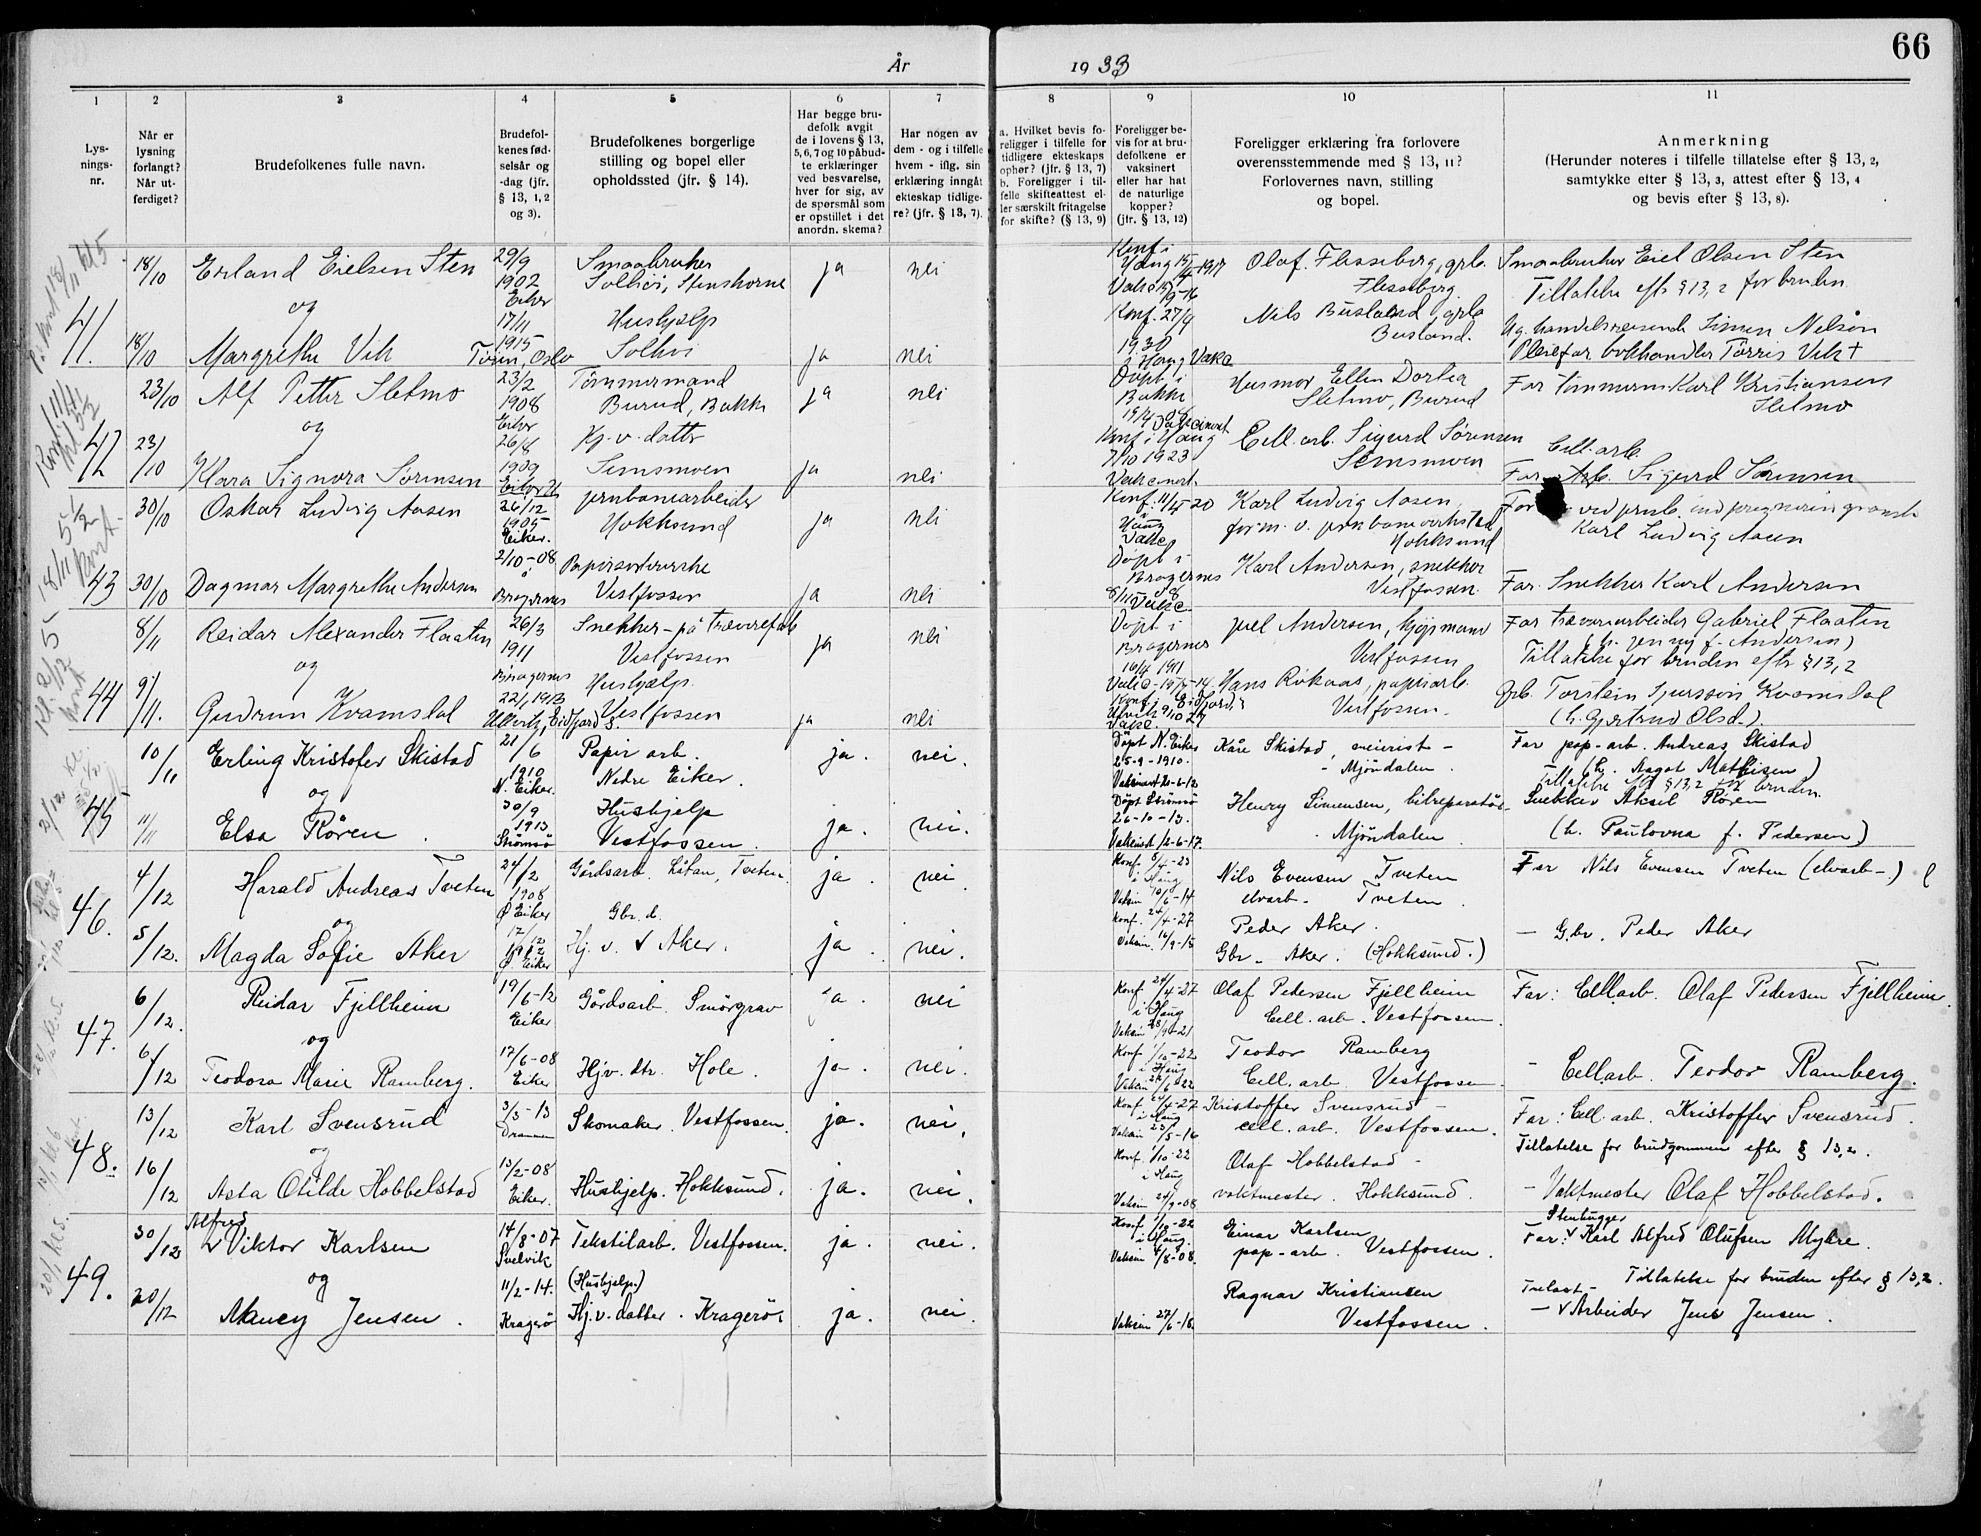 66
År 1933
1 2 3 4 5 6 7 8 9 10 11
Lys-
nings-
nr.
Når er
lysning
forlangt?
Når ut-
ferdiget?
Brudefolkenes fulle navn.
Brudefol-
kenes fød-
selsår og
-dag (jfr.
§ 13, 1, 2
og 3).
Brudefolkenes borgerlige
stilling og bopel eller
opholdssted (jfr. § 14).
Har begge bru-
defolk avgit
de i lovens § 13,
5, 6, 7 og 10 påbud-
te erklæringer
ved besvarelse,
hver for sig, av
de spørsmål som
er opstillet i det
anordn. skema?
Har nogen av
dem - og i tilfelle
hvem - iflg. sin
erklæring inngåt
ekteskap tidlige-
re? (jfr. § 13, 7).
a. Hvilket bevis fo-
religger i tilfelle for
tidligere ekteskaps
ophør? (jfr. § 13, 7)
b. Foreligger i til-
felle skifteattest el-
ler særskilt fritagelse
for skifte? (§ 13, 9)
Foreligger be-
vis for at bru-
defolkene er
vaksinert
eller har hat
de naturlige
kopper?
(jfr. § 13, 12)
Foreligger erklæring fra forlovere
overensstemmende med § 13, 11?
Forlovernes navn, stilling
og bopel.
Anmerkning
(Herunder noteres i tilfelle tillatelse efter § 13, 2,
samtykke efter § 13, 3, attest efter § 13, 4
og bevis efter § 13, 8).
41.
18/10 Erland Eielsen Sten 29/9 1902 Eiker Smaabruker Solhöi, Stenshorne ja nei
Konf. i Haug 15/4-1917 Vaks. 19-16 Olaf Flesseberg, grbr. Flesseberg
Smaabruker Eiel Olsen Sten
Tillatelse eft. § 13, 2 for bruden
og
18/10 Margrethe Vik 17/11 1915 Oslo Hushjælp Solhöi ja nei
Konf. 27/4 1930 i Haug Vaks. Nils Busland, grbr. Busland.
Ug. handelsreisende Simen Nelson
Pleiefar bokhandler Törris Vik +
42
23/10 Alf Petter Sletmo 23/2 1908 Eiker Tömmermand Burud, Bakke ja nei
Döpt i Bakke 19/4 08 Vaksinert Husmor Ellen Dorthea Sletmo, Burud
Far tömmerm. Karl Kristiansen Sletmo
og
23/10 Klara Signora Sørensen 26/8 1909 Eiker Hj. v. datter Semsmoen ja nei
Konf. i Haug 7/10 1923 Vaksinert. Cell. arb. Sigurd Sørensen Semsmoen
Cell. arb.
Far: Arb. Sigurd Sørensen
43
30/10 Oskar Ludvig Aasen 26/12 1905 Eiker. Jernbanearbeider Hokksund ja nei
Konf. 11/4 20 i Haug Vaks. Karl Ludvig Aasen, form. v. jernbaneverksted Hokksund
Far ved jernb.
Karl Ludvig Aasen
30/10 Dagmar Margrethe Andersen 2/10-08 i Bragernes Papirsorterske Vestfossen ja nei
Döpt i Bragernes 8/11 08 Vaks. Karl Andersen, snekker Vestfossen.
Far: Snekker Karl Andersen
44
8/11 Reidar Alexander Flaaten 26/3 1911 Bragernes Snekker - på trævarefab Vestfossen ja nei
Döpt i Bragernes 16/4 1911 Vaks. Juel Andersen, kjöpmand Vestfossen
Far trævarearbeider Gabriel Flaaten
(h. Jenny f. Andersen)
Tillatelse for bruden eft. § 13, 2
og
9/11. Gudrun Kvamsdal 22/1 1913 Ullvik, Eidfjord s. Hushjælp. Vestfossen ja nei
Konf. i Eidfjord, Ulvik 9/10 27 Vaks. Hans Rökaas, papirarb. Vestfossen.
Grb. Torstein Sjurssön Kvamsdal
(h. Gjertrud Olsd.)
45
10/11 Erling Kristofer Skistad 21/6 1910 N. Eiker. Papir arb. Nedre Eiker. ja. nei.
Döpt N. Eiker 25-9-1910. Kåre Skistad, meierist - Mjöndalen.
Far pap-arb. Andreas Skistad
(h. Aagot Mathisen)
Tillatelse eft. § 13, 2 for bruden.
og
11/11 Elsa Rören. 30/9 1913 Strömsö Hushjelp Vestfossen. ja. nei.
Döpt Strömsö 26-10-13. Vaksinert 12-6-17. Henry Simensen, bilreparatör - Mjöndalen
Snekker Aksel Rören
(h. Paulovna f. Pedersen)
46.
4/12 Harald Andreas Tveten 24/2 1908 Ø Eiker Gårdsarb. Tveten. ja. nei.
Konf. 8/4-23 i Haug Vaksin 10/6-14 Nils Evensen Tveten elvarb- Tveten.
Far Nils Evensen Tveten (elvarb-)
og
5/12. Magda Sofie Aker 12/12 1912 Ø Eiker Gbr. d. Hj. v. Aker. ja. nei.
Konf. 24/4-27 Vaksin. 16/9-18 Peder Aker. Gbr. Aker. (Hokksund.)
- Gbr. Peder Aker
47.
6/12. Reidar Fjellheim 19/6-12 Eiker Gårdsarb. Smörgrav ja. nei
Konf 24/4-27 i Haug Vaksin 28/9-21 Olaf Pedersen Fjellheim Cell. arb. Vestfossen.
Far: Cellarb. Olaf Pedersen Fjellheim.
og
6/12 Teodora Marie Ramberg. 17/6-08 Eiker Hjv. dtr. Hole. ja. nei.
Konf 1/10-22 i Haug Teodor Ramberg Cell. arb. Vestfossen.
- Cellarb. Teodor Ramberg.
48.
13/12 Karl Svensrud 3/3-13 Drammen Skomaker. Vestfossen. ja. nei.
Konf. 24/4-27 i Haug Vaksin 23/5-16 Kristoffer Svensrud - cell. arb. Vestfossen.
Far: Cell. arb. Kristoffer Svensrud.
Tillatelse for brudgommen efter § 13, 2.
og
16/12 Asta Otilde Hobbelstad 13/2-08 Eiker. Hushjelp. Hokksund. ja. nei.
Konf. 1/10-22 i Haug Vaksin 24/9-08 Olaf Hobbelstad - vaktmester. Hokksund.
- Vaktmester Olaf Hobbelstad.
49.
30/12 Alfred Viktor Karlsen 14/8-07 Svelvik Tekstilarb. Vestfossen. ja. nei.
Konf 1/10-22 i Haug. Vaksin 4/8-08. Einar Karlsen pap-arb. Vestfossen.
Stenhugger
Far: Karl Alfred Olufsen Myhre.
Tillatelse for bruden efter § 13, 2.
og
30/12 Nancy Jensen. 11/2-14. Kragerö (Hushjelp.) Hj. v. datter. Kragerö. ja. nei.
Vaksin 27/6-18. Ragnar Kristiansen Vestfossen.
Trelast-
- Arbeider Jens Jensen.